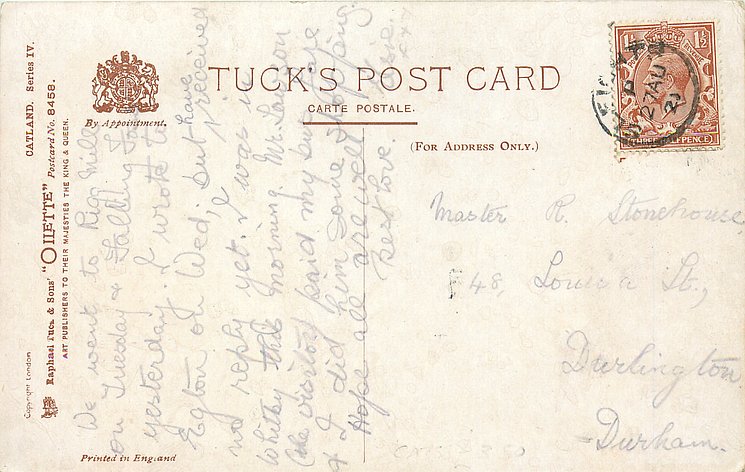 CATLAND. Series IV.
Raphael Tuck & Sons' "OILETTE" Postcard No. 8458.
ART PUBLISHERS TO THEIR MAJESTIES THE KING & QUEEN.
Copyright London
By Appointment.
TUCK'S POST CARD
CARTE POSTALE.
(FOR ADDRESS ONLY.)
Printed in England
1½ 1½
THREE HALFPENCE
27 AU
21
We went to Rigg Mill
on Tuesday & Falling Foss
yesterday. I wrote to
Egton on Wed, but have
received
no reply yet. I was in
Whitby this morning. Mr. Lawson
(the visitor) paid my bus fare
& I did him some shopping.
Hope all are well
Best love.
xxx
Master R. Stonehouse,
48, Louisa St.,
Darlington,
Durham.